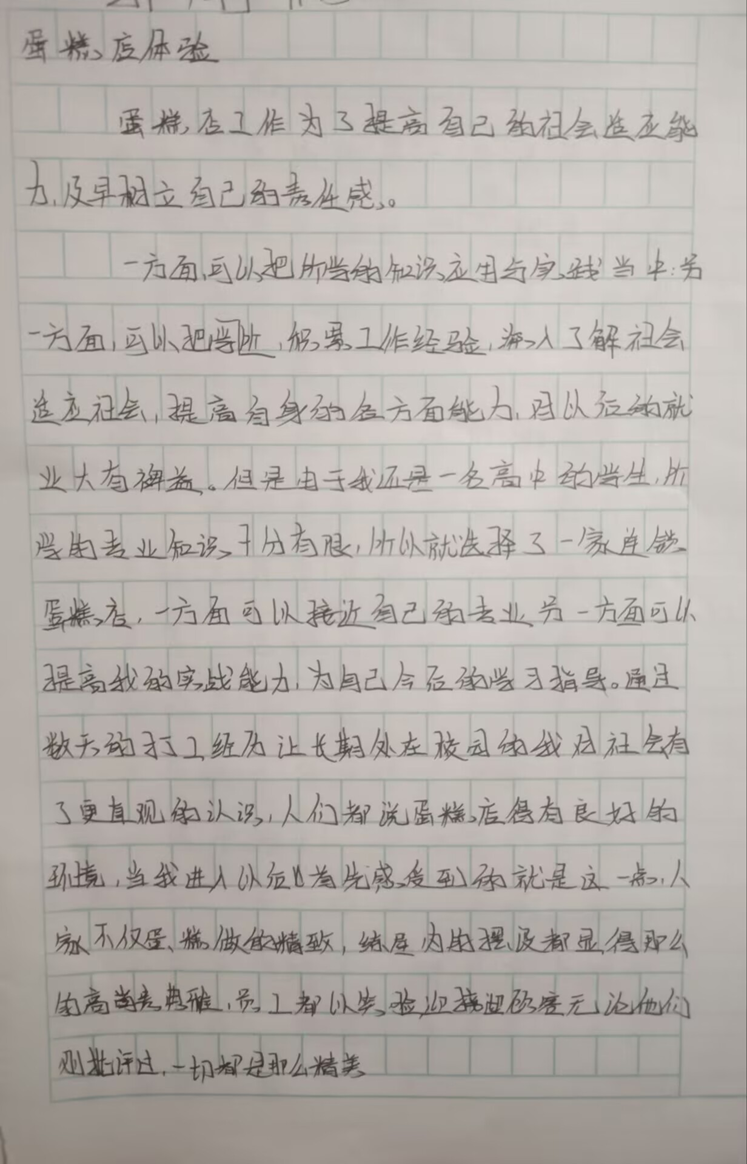 蛋糕店体验
蛋糕店工作为了提高自己的社会适应能
力,及早树立自己的责任感。
一方面,可以把所学的知识应用与实践当中:另
一方面,可以把学所,积累工作经验,深入了解社会
适应社会,提高自身的各方面能力,对以后的就
业大有裨益。但是由于我还是一名高中的学生,所
学的专业知识十分有限,所以就选择了一家连锁
蛋糕店,一方面可以接近自己的专业另一方面可以
提高我的实战能力,为自己今后的学习指导。通过
数天的打工经历让长期处在校园的我对社会有
了更直观的认识,人们都说蛋糕店得有良好的
环境,当我进入以后首先感受到的就是这一点,人
家不仅蛋糕做的精致,屋内的摆设都显得那么
的高典雅,员工都以笑脸迎接顾客无论他们
批评过,一切都是那么精美